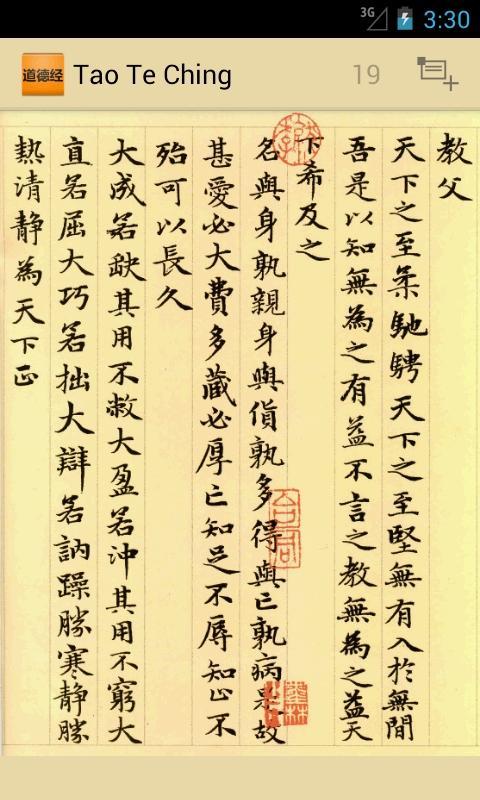 3G
3:30
道德经
Tao Te Ching
19
教父
天下之至柔馳騁天下之至堅無有入於無間
吾是以知無為之有益不言之教無為之益天
下希及之
名與身孰親身與貨孰多得與亡孰病是故
甚愛必大費多藏必厚亡知足不辱知止不
殆可以長久
大成若缺其用不敝大盈若沖其用不窮大
直若屈大巧若拙大辯若訥躁勝寒静勝
熱清静為天下正